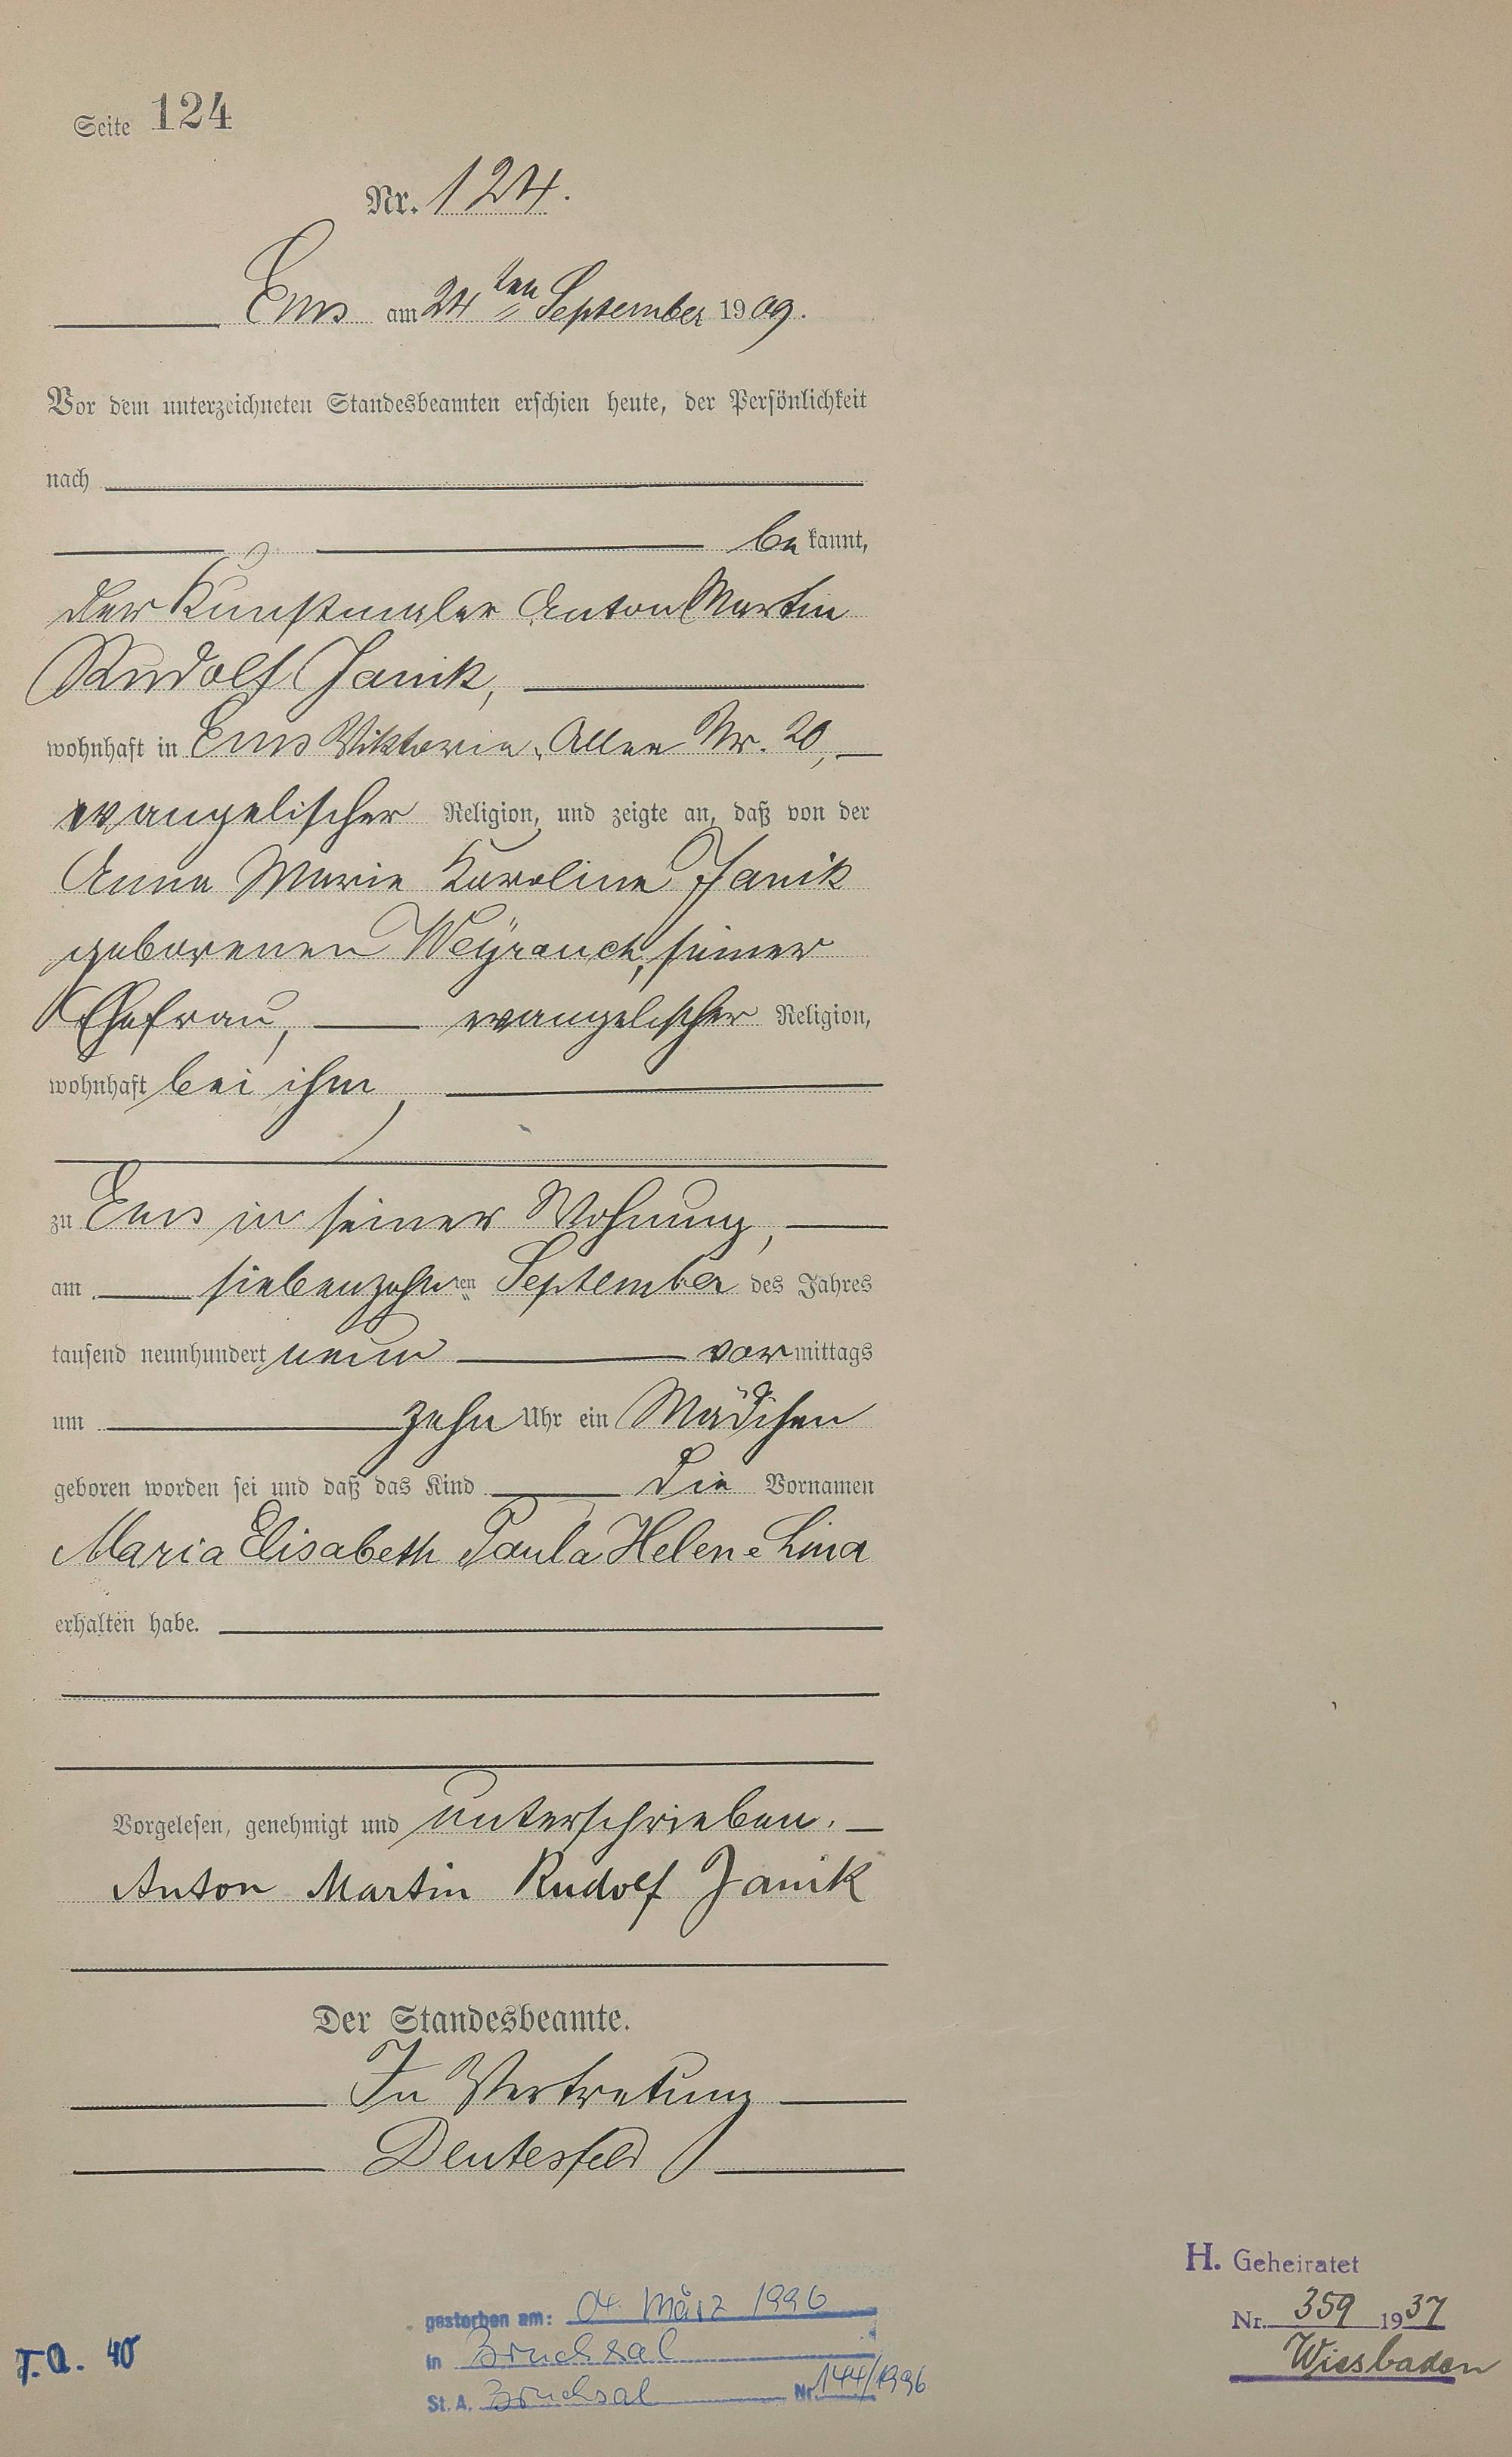 Seite 124
Nr. 124.
Ems am 24ten September 1909.
Vor dem unterzeichneten Standesbeamten erschien heute, der Persönlichkeit
nach
be kannt,
der Kunstmaler Anton Martin
Rudolf Janik,
wohnhaft in Ems Viktoria-Allee Nr. 20,
evangelischer Religion, und zeigte an, daß von der
Anna Marie Karoline Janik
geborenen Weÿrauch, seiner
Ehefrau, evangelischer Religion,
wohnhaft bei ihm,
zu Ems in seiner Wohnung,
am siebenzehnten September des Jahres
tausend neunhundert neun vormittags
um zehn Uhr ein Mädchen
geboren worden sei und daß das Kind die Vornamen
Maria Elisabeth Paula Helene Lina
erhalten habe.
Vorgelesen, genehmigt und unterschrieben.
Anton Martin Rudolf Janik
Der Standesbeamte.
In Vertretung
Deutesfeld
H. Geheiratet
Nr. 359 1937
Wiesbaden
gestorben am: 04. März 1996
in Bruchsal
St. A. Bruchsal Nr. 144/1996
T.a. 40